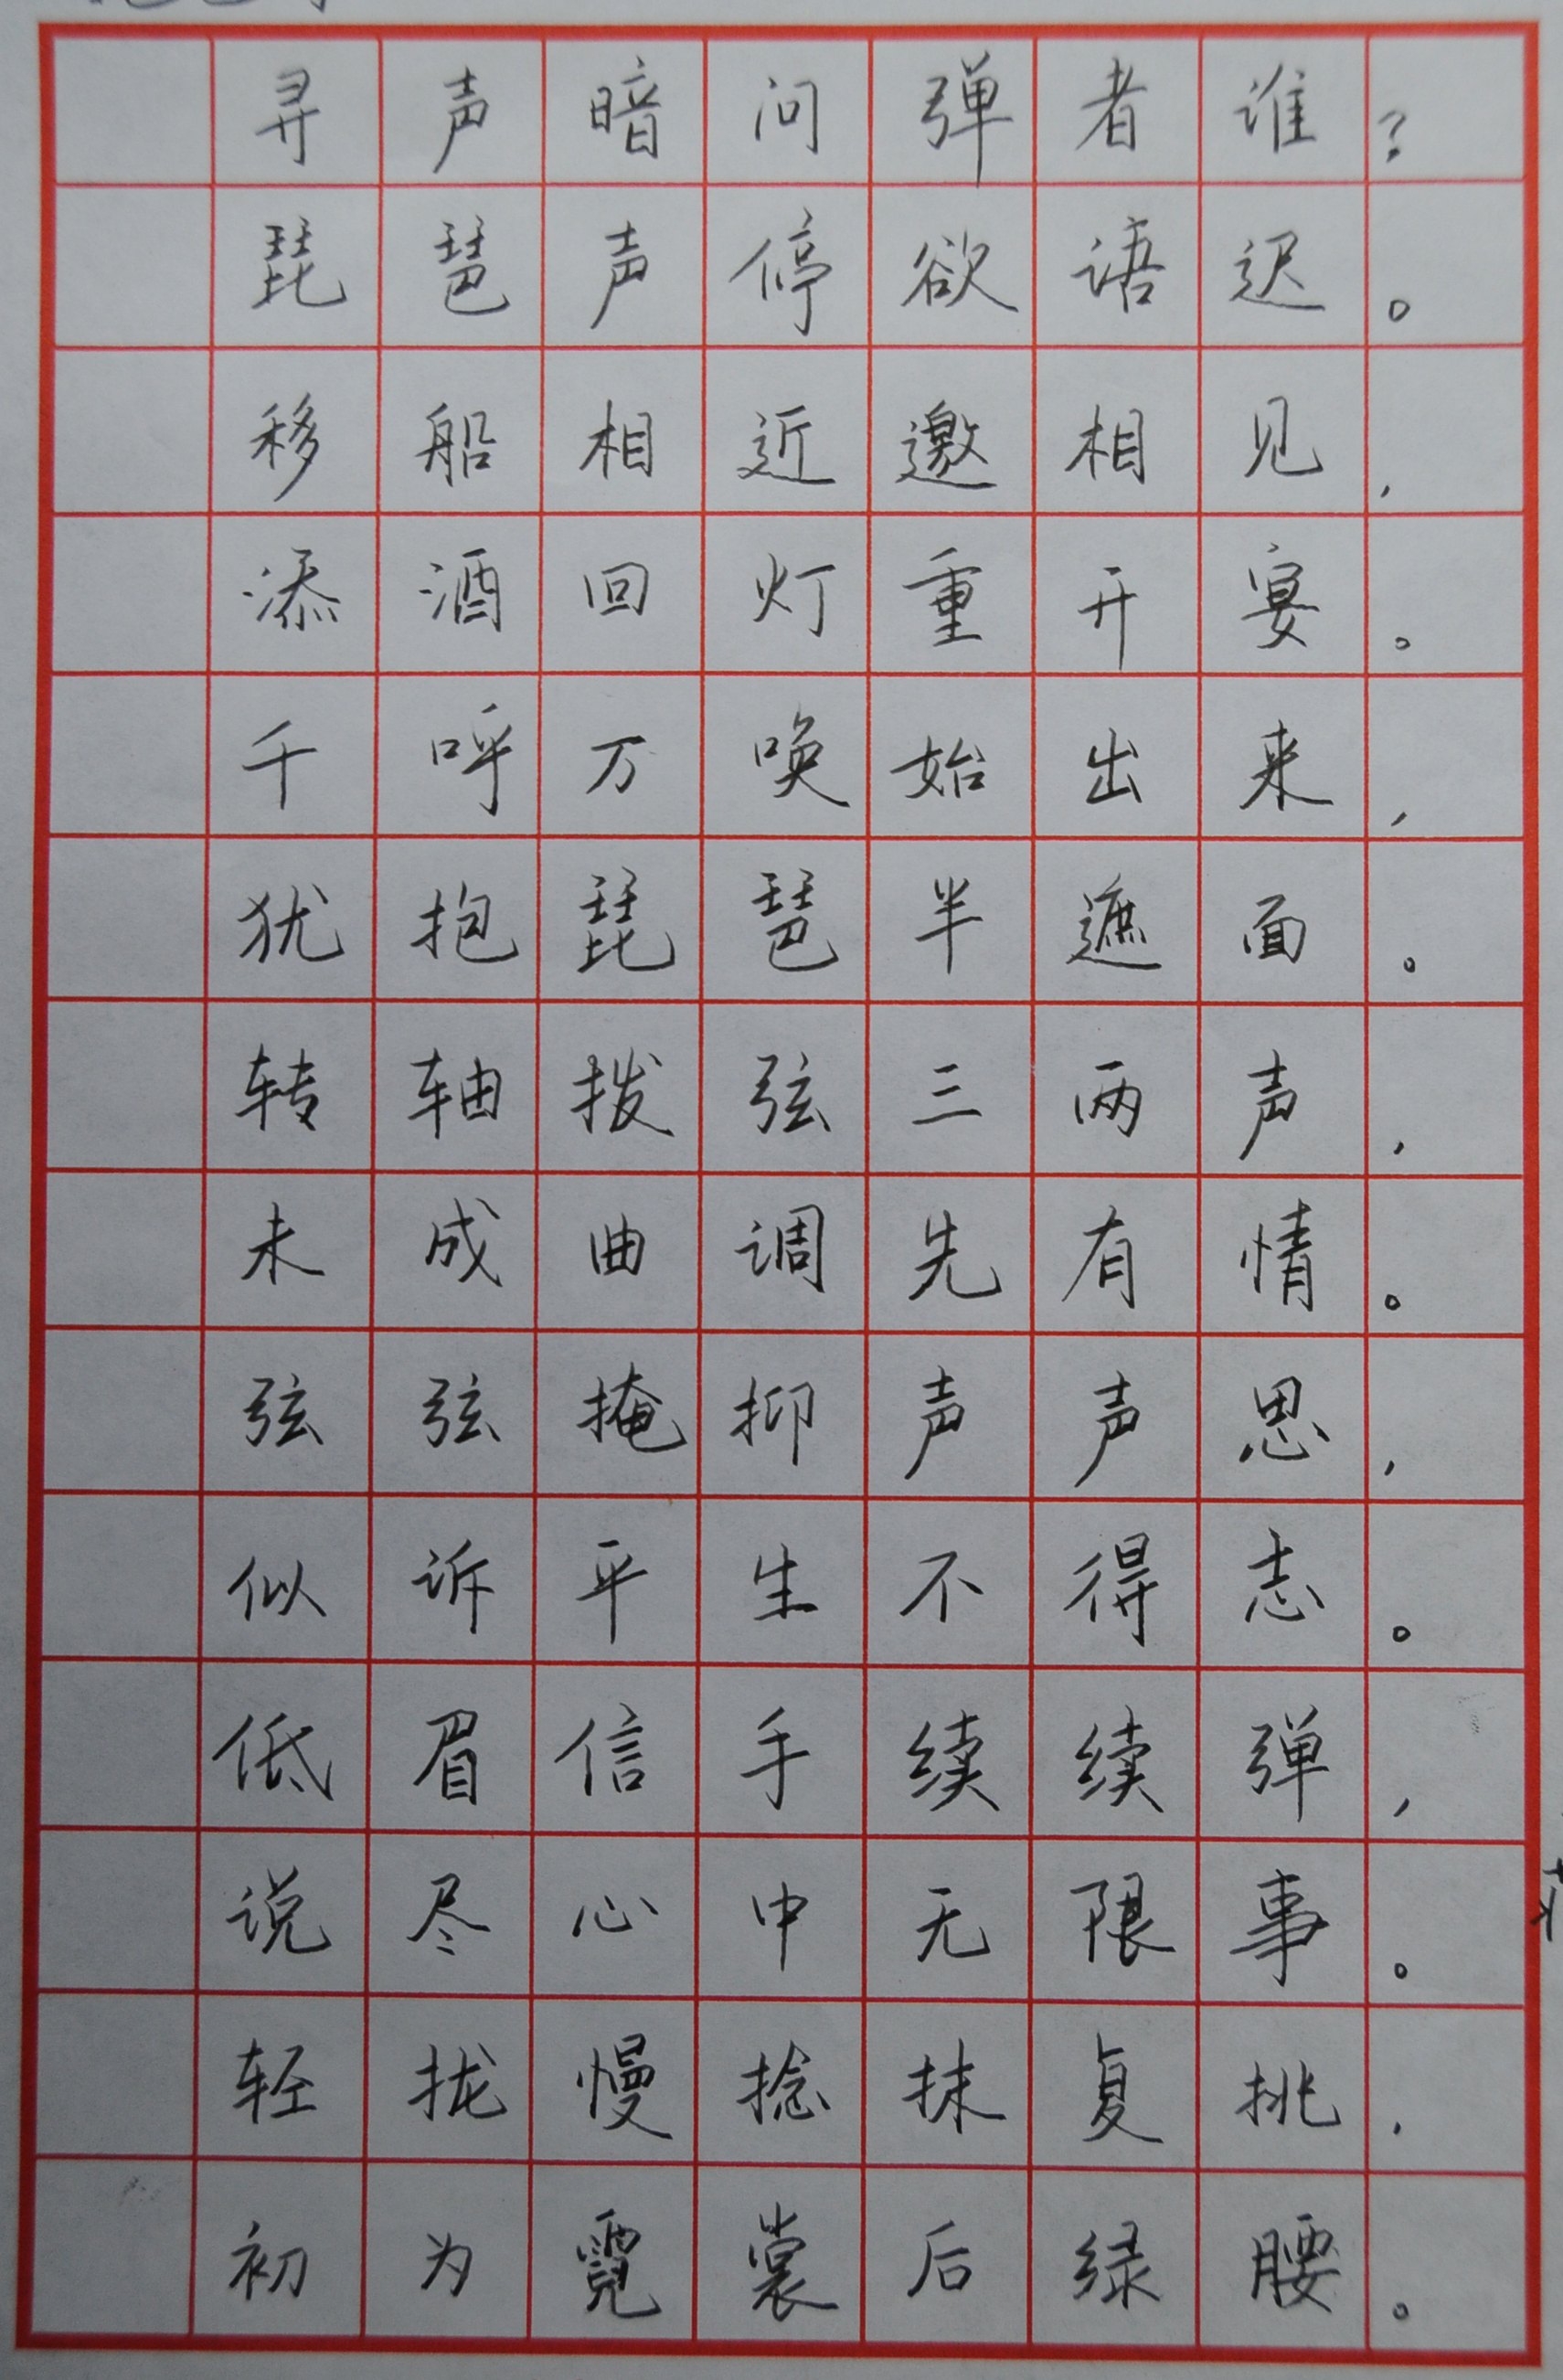 寻声暗问弹者谁?
琵琶声停欲语迟。
移船相近邀相见,
添酒回灯重开宴。
千呼万唤始出来,
犹抱琵琶半遮面。
转轴拨弦三两声,
未成曲调先有情。
弦弦掩抑声声思,
似诉平生不得志。
低眉信手续续弹,
说尽心中无限事。
轻拢慢捻抹复挑,
初为霓裳后绿腰。